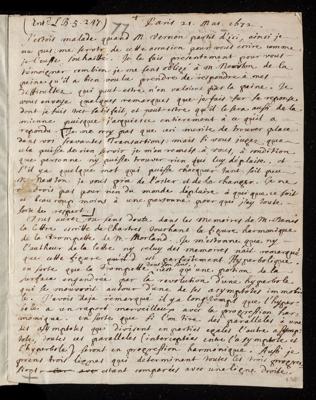 Paris 21. Mai. 1672
J'estois malade quand M. Vernon partit d'ici, ainsi je
ne pus me servir de cette occasion pour vous ecrire comme
je l'eusse souhaitté. Je le fais presentement pour vous
temoigner combien je me sens obligé à M. de la
peine qu'il a bien voulu prendre de respondre à mes
difficultez qui peut estre n'en valoient pas la peine. Je
vous envoye quelques remarques que j'ay fait sur sa reponse
dont je suis tres satisfait, et peut estre qu'il le sera aussi de la
mienne puisque j'acquiesce entierement à ce qu'il a
repondu. Je ne croy pas que ceci merite de trouver place
dans vos sçavantes Transactions mais si vous jugez que
cela puisse de rien servir je m'en remets à vous, à condition
que personne n'y puisse trouver rien qui luy deplaise, et
s'il y a quelque mot qui puisse choquer tant soit peu
M. je vous prie de l'oster et de le changer. Je ne
voudrois pas pour rien du monde deplaire à qui que ce soit
et beaucoup moins à une personne pour qui j'ay toute
sorte de respect.
Vous avez veu sans doute dans les Memoires de M. Denis
la lettre escrite de Chartres touchant la figure harmonique
de la trompette de M. Morland. Je m'estonne que ny
l'autheur de la lettre ny celuy des memoires n'ait remarqué
que cette figure est parfaitement Hyperbolique.
en sorte que la trompette n'est qu'une portion de la
surface engendrée par la revolution d'une hyperbole
qui se mouvroit autour d'une de ses asymptotes immobile.
J'avois deja remarqué il y a longtemps que l'hyperbole
a un raport merveilleux avec la progression harmonique.
en sorte que si l'on tire des paralleles à une
des asymptotes qui divisent en parties egales l'autre asymptote,
toutes ces paralleles (interceptées entre l'asymptote et
l'hyperbole) seront en progression harmonique. Aussi je
prens trois lignes qui determinent toutes les trois progressions
estant comparées avec une ligne droite.